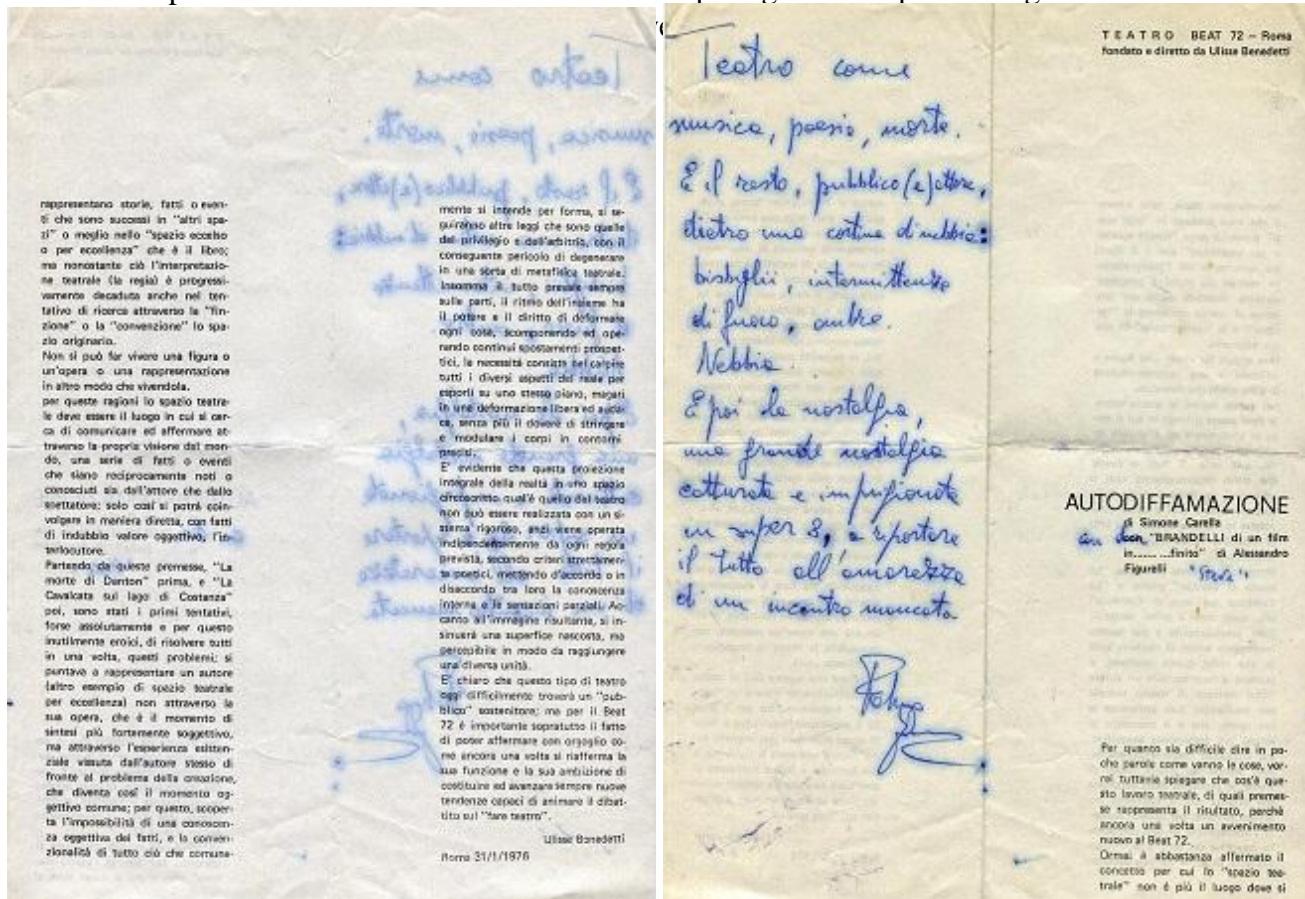 rappresentano storie, fatti o even-
ti che sono successi in "altri spa-
zi" o meglio nello "spazio eccelso
o per eccellenza" che è il libro;
ma nonostante ciò l'interpretazio-
ne teatrale (la regia) è progressi-
vamente decaduta anche nel ten-
tativo di ricerca attraverso la "fin-
zione" o la "convenzione" lo spa-
zio originario.
Non si può far vivere una figura o
un'opera o una rappresentazione
in altro modo che vivendola.
per queste ragioni lo spazio teatra-
le deve essere il luogo in cui si cer-
ca di comunicare ed affermare at-
traverso la propria visione del mon-
do, una serie di fatti o eventi
che siano reciprocamente noti o
conosciuti sia dall'attore che dallo
spettatore; solo così si potrà coin-
volgere in maniera diretta, con fatti
di indubbio valore oggettivo, l'in-
terlocutore.
Partendo da queste premesse, "La
morte di Danton" prima, e "La
Cavalcata sul lago di Costanza"
poi, sono stati i primi tentativi,
forse assolutamente e per questo
inutilmente eroici, di risolvere tutti
in una volta, questi problemi; si
puntava a rappresentare un autore
(altro esempio di spazio teatrale
per eccellenza) non attraverso la
sua opera, che è il momento di
sintesi più fortemente soggettivo,
ma attraverso l'esperienza esisten-
ziale vissuta dall'autore stesso di
fronte al problema della creazione,
che diventa così il momento og-
gettivo comune; per questo, scoper-
ta l'impossibilità di una conoscen-
za oggettiva dei fatti, e la conven-
zionalità di tutto ciò che comune-
mente si intende per forma, si se-
guiranno altre leggi che sono quelle
del privilegio e dell'arbitrio, con il
conseguente pericolo di degenerare
in una sorta di metafisica teatrale.
Insomma il tutto prevale sempre
sulle parti, il ritmo dell'insieme ha
il potere e il diritto di deformare
ogni cosa, scomponendo ed ope-
rando continui spostamenti prospet-
tici, la necessità consiste nel carpire
tutti i diversi aspetti del reale per
esporli su uno stesso piano, magari
in una deformazione libera ed auda-
ce, senza più il dovere di stringere
e modulare i corpi in contorni
precisi.
E' evidente che questa proiezione
integrale della realtà in uno spazio
circoscritto qual'è quello del teatro
non può essere realizzata con un si-
stema rigoroso, anzi viene operata
indipendentemente da ogni regola
prevista, secondo criteri strettamen-
te poetici, mettendo d'accordo o in
disaccordo tra loro la conoscenza
interna e le sensazioni parziali. Ac-
canto all'immagine risultante, si in-
sinuerà una superfice nascosta, ma
percepibile in modo da raggiungere
una diversa unità.
E' chiaro che questo tipo di teatro
oggi difficilmente troverà un "pub-
blico" sostenitore; ma per il Beat
72 è importante sopratutto il fatto
di poter affermare con orgoglio co-
me ancora una volta si riafferma la
sua funzione e la sua ambizione di
costituire ed avanzare sempre nuove
tendenze capaci di animare il dibat-
tito sul "fare teatro".
Ulisse Benedetti
Roma 31/1/1976
Teatro come
musica, poesia, morte.
E il resto, pubblico (e) attore,
dietro una cortina di nebbia:
bisbiglii, intermittenze
di fuoco, ombre.
Nebbia.
E poi la nostalgia,
una grande nostalgia
catturata e imprigionata
in super 8, a riportare
il tutto all'amarezza
di un incontro mancato
TEATRO BEAT 72 – Roma
fondato e diretto da Ulisse Benedetti
AUTODIFFAMAZIONE
di Simone Carella
con "BRANDELLI di un film
in........finito" di Alessandro
Figurelli
Per quanto sia difficile dire in po-
che parole come vanno le cose, vor-
rei tuttavia spiegare che cos'è que-
sto lavoro teatrale, di quali premes-
se rappresenta il risultato, perchè
ancora una volta un avvenimento
nuovo al Beat 72.
Ormai è abbastanza affermato il
concetto per cui lo "spazio tea-
trale" non è più il luogo dove si